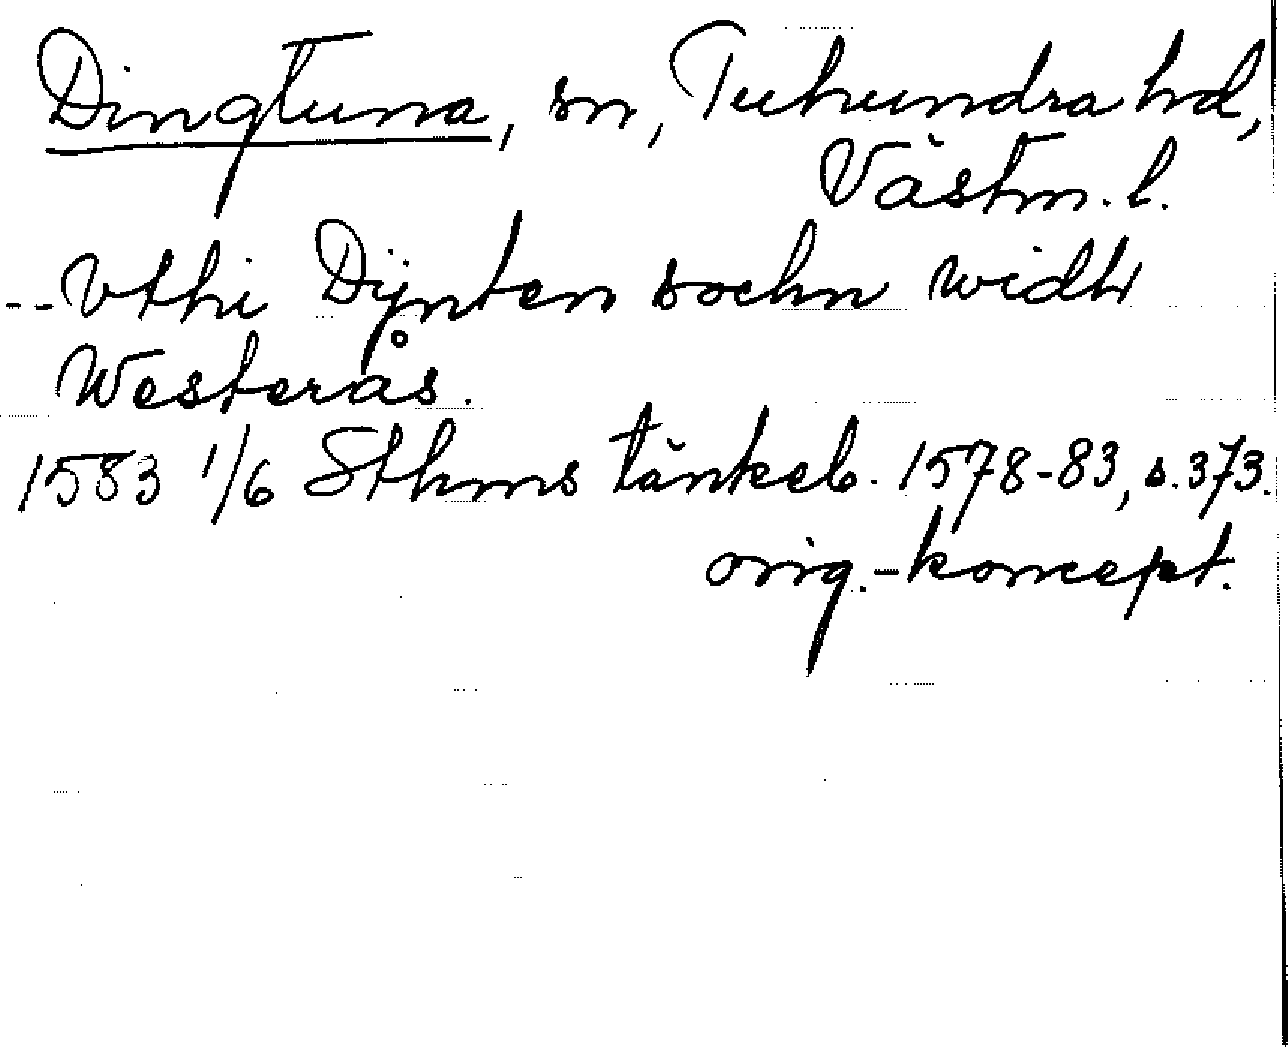 Dingtuna, sn, Tuhundra hd,
Västm. l.
-- Vthi Dÿnten sochn widh
Westerås.
1583 1/6 Sthms tänkeb. 1578-83, s. 373.
orig.-koncept.